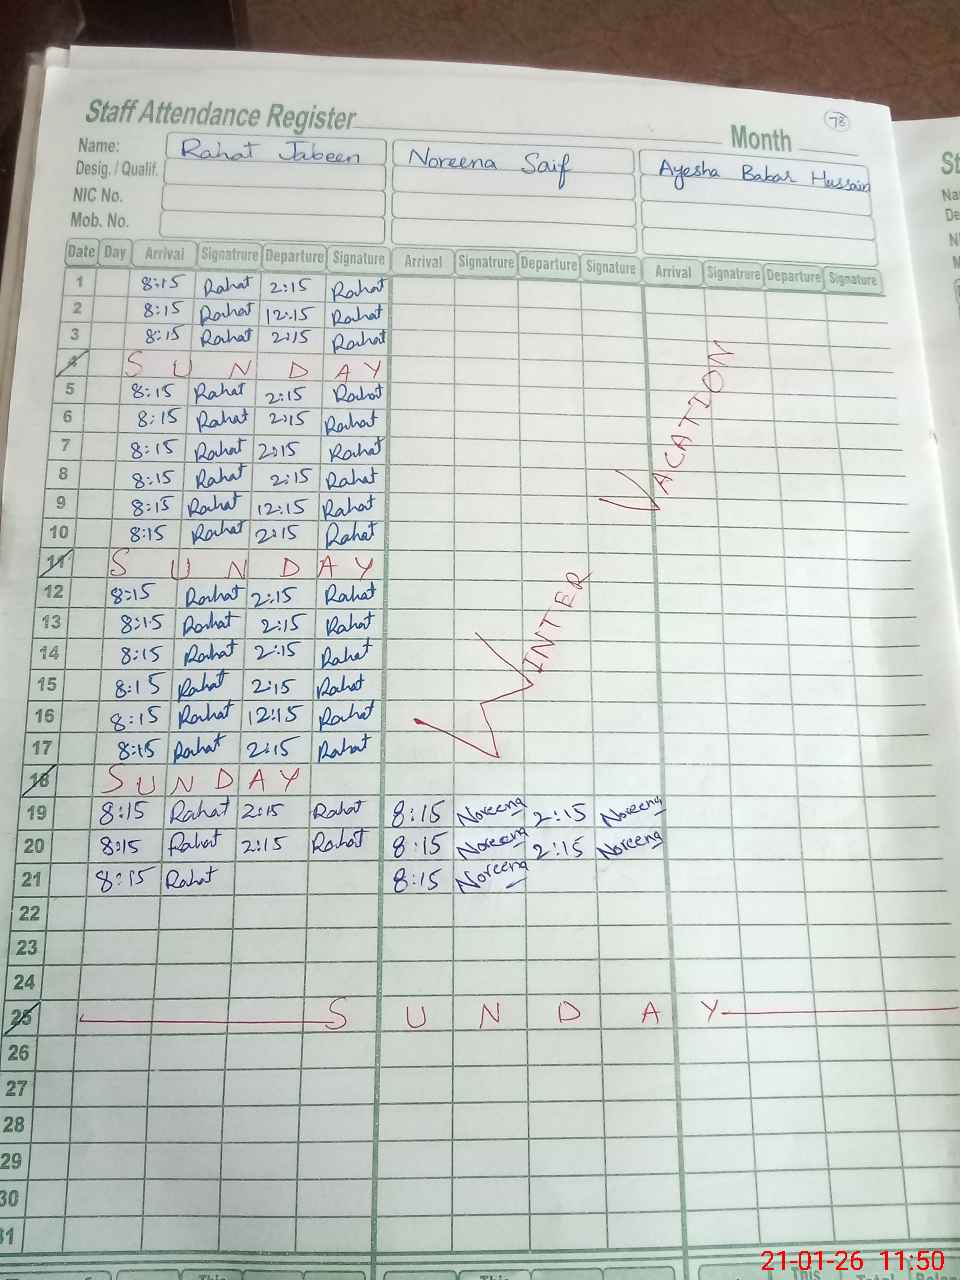 Staff Attendance Register
Month
78
Name: Rahat Jabeen Noreena Saif Ayesha Babar Hussain
Desig. / Qualif.
NIC No.
Mob. No.
Date Day Arrival Signatrure Departure Signature Arrival Signatrure Departure Signature Arrival Signatrure Departure Signature
1 8:15 Rahat 2:15 Rahat
2 8:15 Rahat 12:15 Rahat
3 8:15 Rahat 2:15 Rahat
4 SUNDAY
5 8:15 Rahat 2:15 Rahat
6 8:15 Rahat 2:15 Rahat
7 8:15 Rahat 2:15 Rahat
8 8:15 Rahat 2:15 Rahat
9 8:15 Rahat 12:15 Rahat
10 8:15 Rahat 2:15 Rahat
11 SUNDAY
12 8:15 Rahat 2:15 Rahat
13 8:15 Rahat 2:15 Rahat
14 8:15 Rahat 2:15 Rahat
15 8:15 Rahat 2:15 Rahat
16 8:15 Rahat 12:15 Rahat
17 8:15 Rahat 2:15 Rahat
WINTER VACATION
18 SUNDAY
19 8:15 Rahat 2:15 Rahat 8:15 Noreena 2:15 Noreena
20 8:15 Rahat 2:15 Rahat 8:15 Noreena 2:15 Noreena
21 8:15 Rahat 8:15 Noreena
22
23
24
25 SUNDAY
26
27
28
29
30
31
21-01-26 11:50